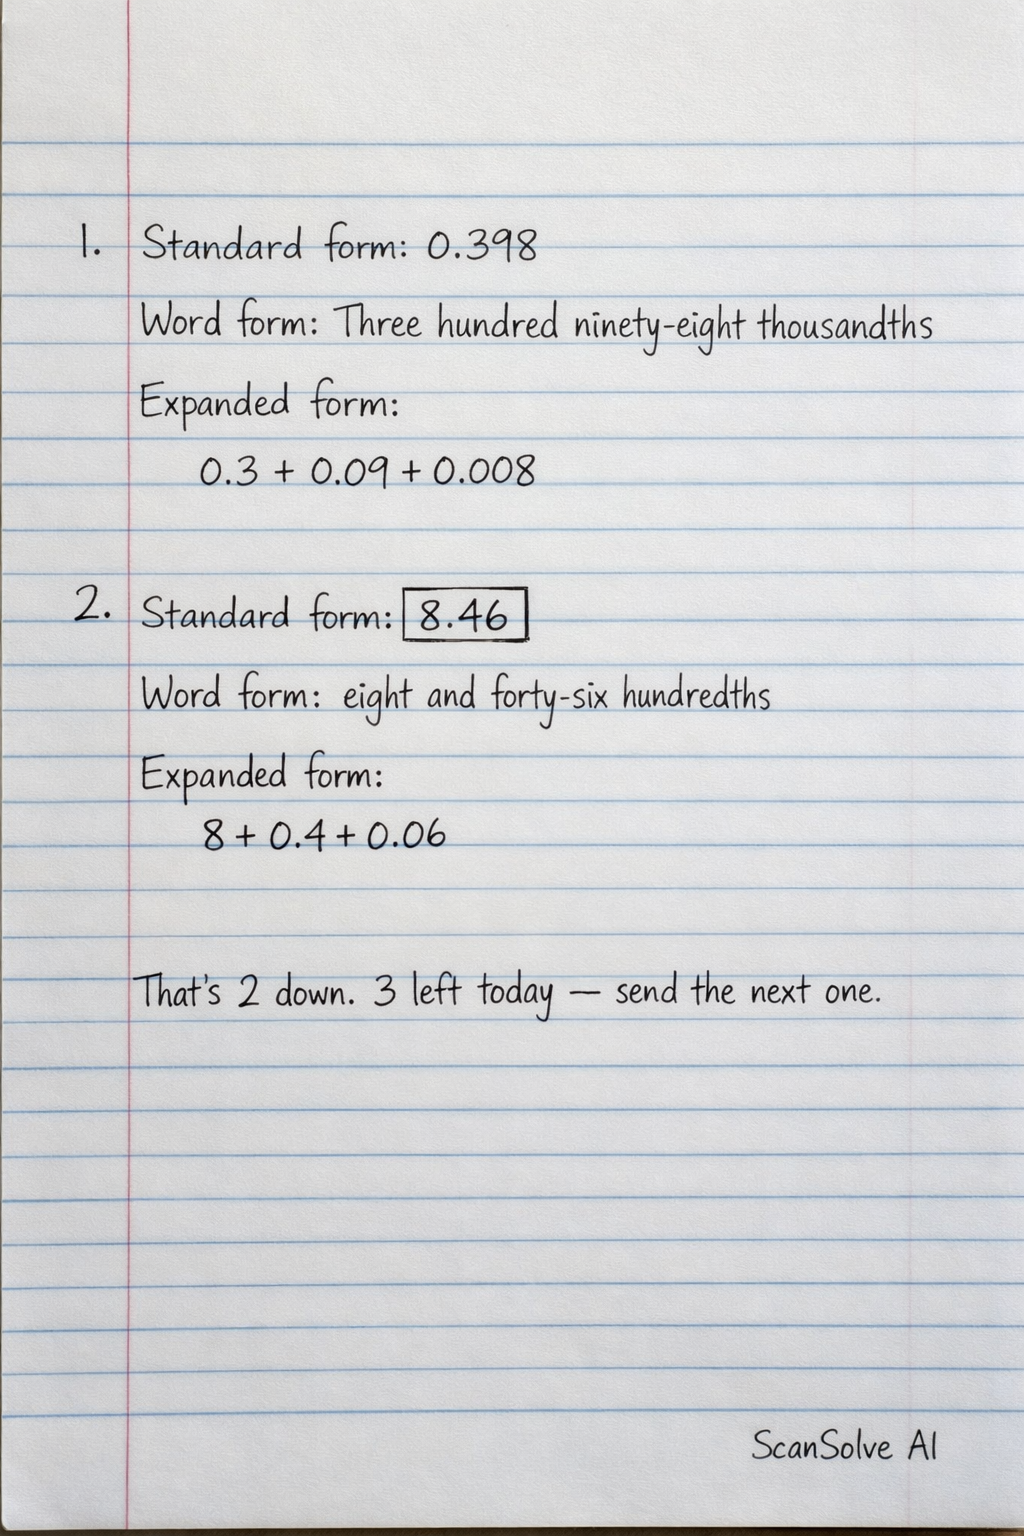 1. Standard form: 0.398
Word form: Three hundred ninety-eight thousandths
Expanded form:
0.3 + 0.09 + 0.008
2. Standard form: 8.46
Word form: eight and forty-six hundredths
Expanded form:
8 + 0.4 + 0.06
That's 2 down. 3 left today — send the next one.
ScanSolve AI